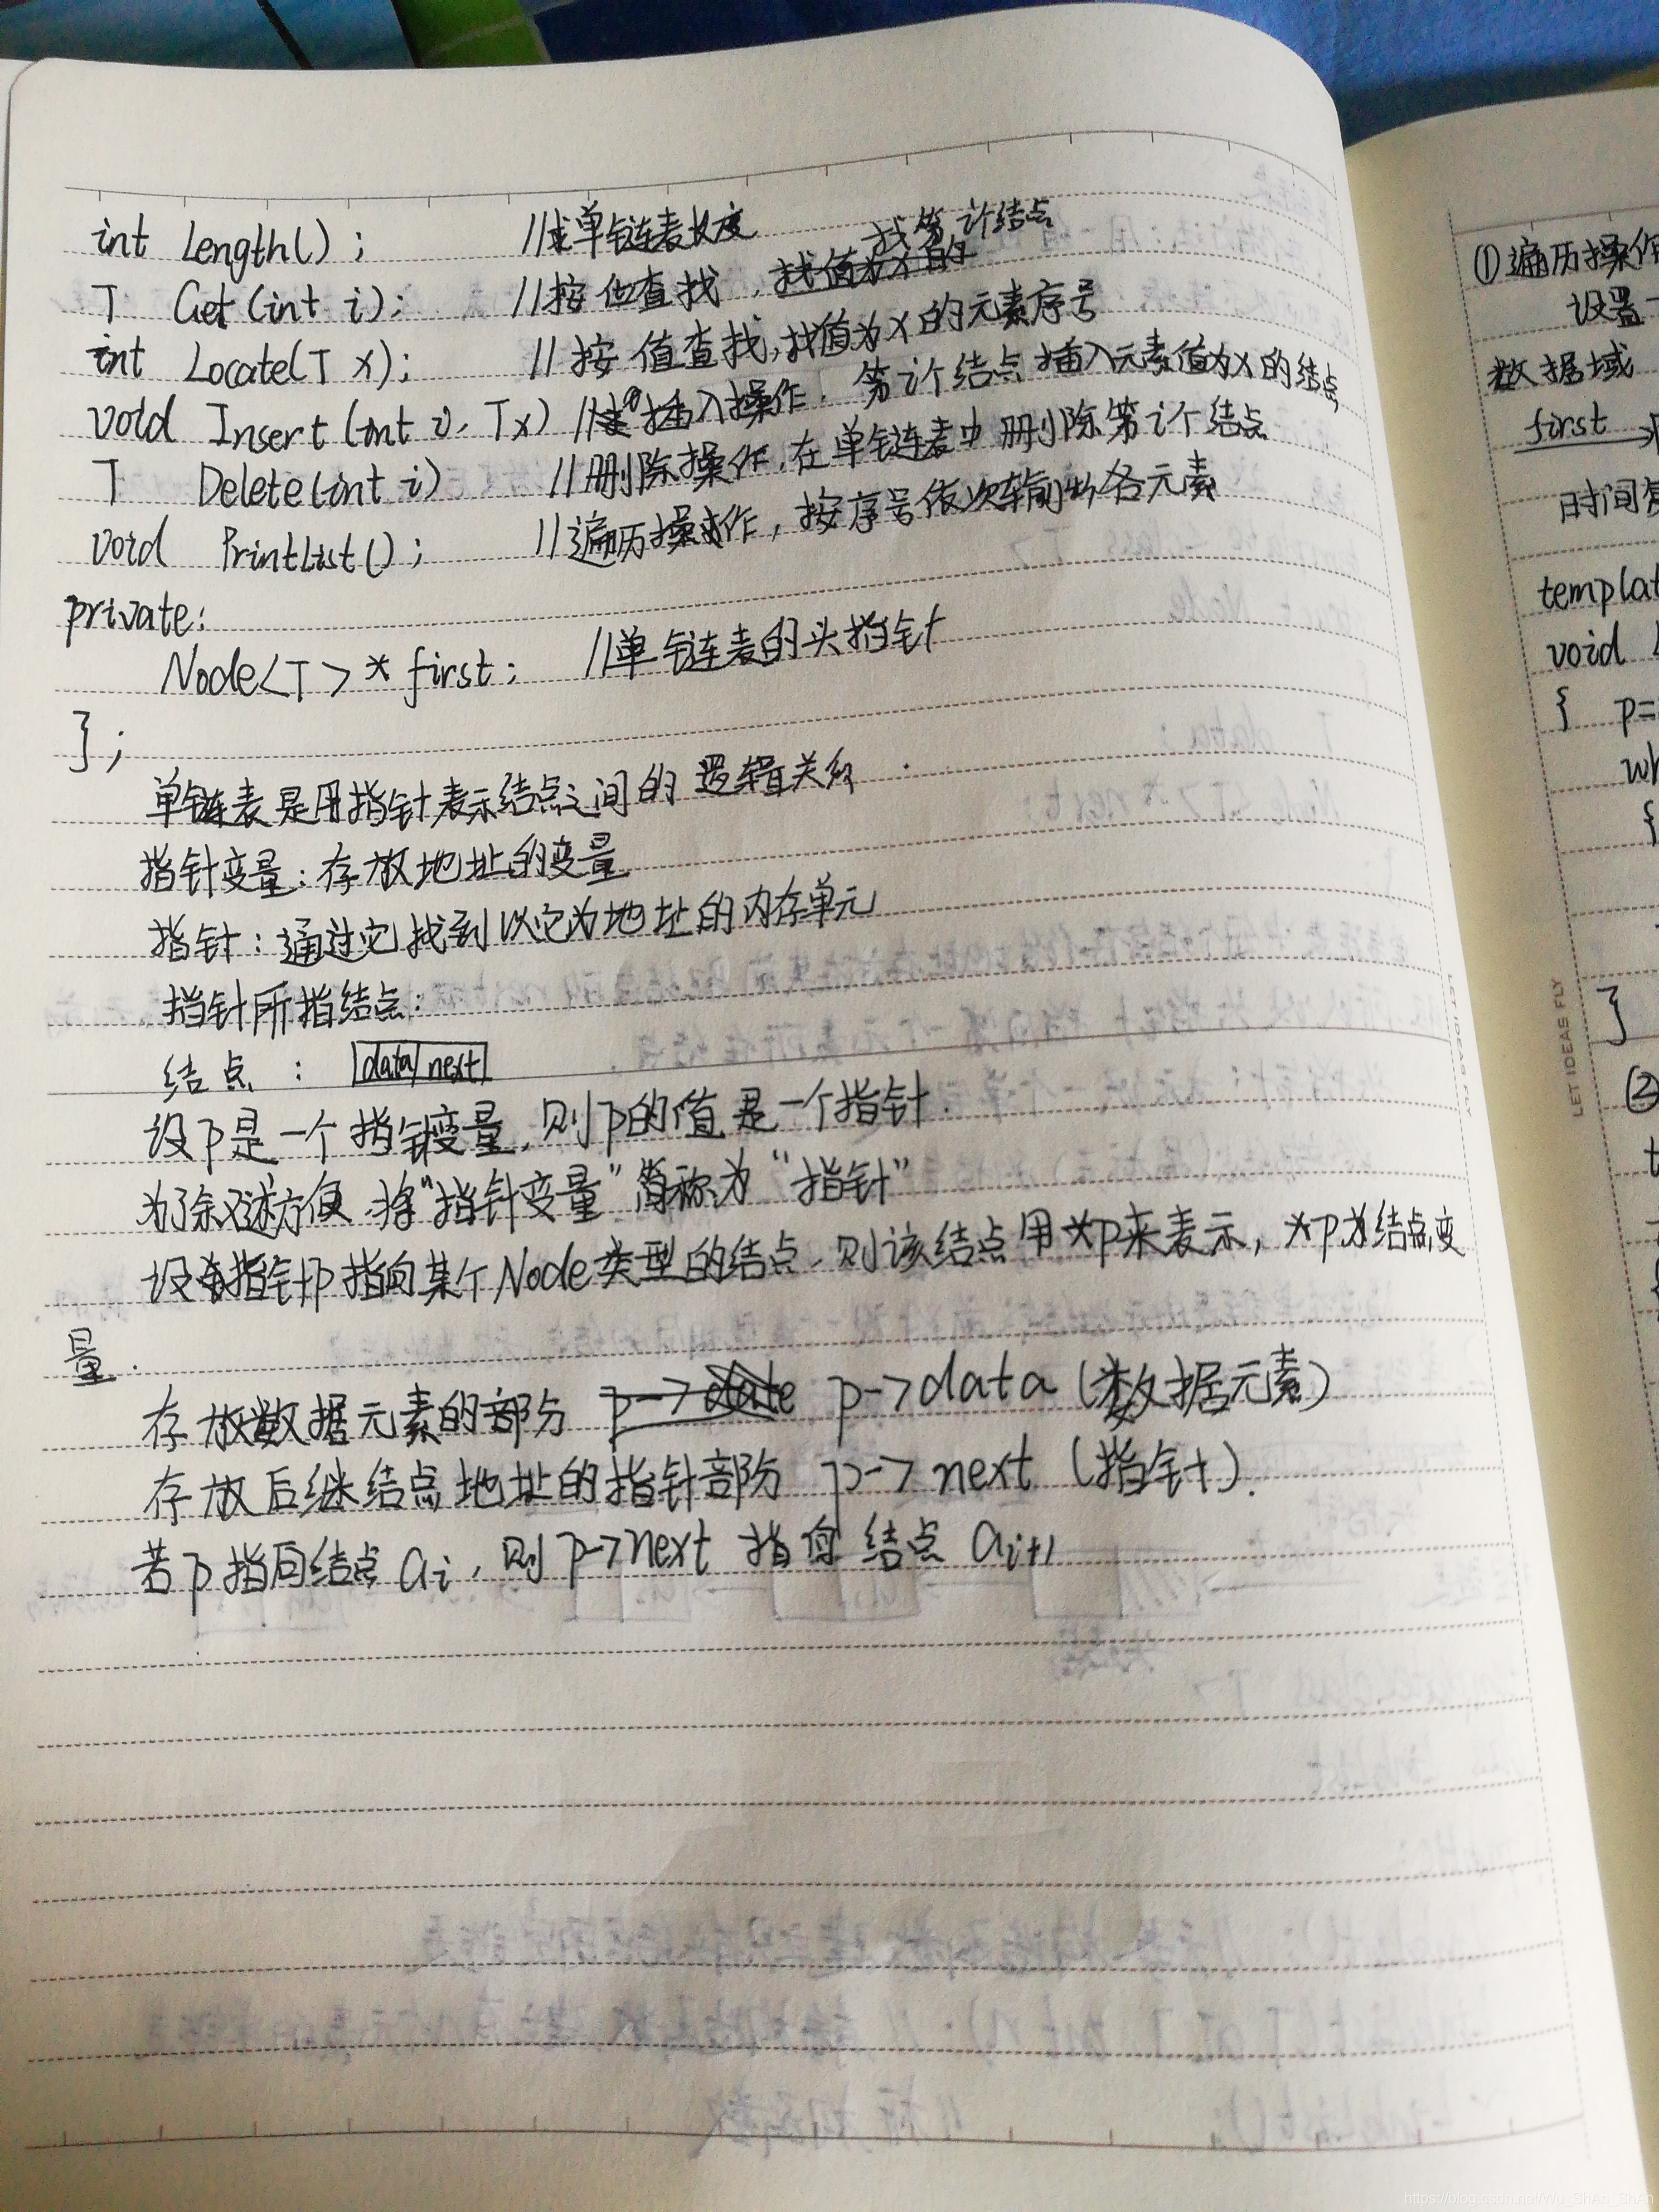 int Length();  //求单链表长度
T Get(int i);  //按位查找,找第i个结点
int Locate(T x);  //按值查找,找值为x的元素序号
void Insert(int i, T x)  //插入操作,第i个结点插入元素值为x的结点
T Delete(int i)  //删除操作,在单链表中删除第i个结点
void PrintList();  //遍历操作,按序号依次输出各元素
private:
Node<T> * first;  //单链表的头指针
};
单链表是用指针表示结点之间的逻辑关系.
指针变量:存放地址的变量
指针:通过它找到以它为地址的内存单元
指针所指结点:
结点: data next
设p是一个指针变量,则p的值是一个指针.
为了叙述方便,将"指针变量"简称为"指针"
设指针p指向某个Node类型的结点,则该结点用*p来表示,*p为结点变
量.
存放数据元素的部分 p->data(数据元素)
存放后继结点地址的指针部分 p->next(指针).
若p指向结点ai,则p->next指向结点ai+1
①遍历操作
设置一
数据域
first
时间复
templat
void
{ p=
wh
{
}
②
t
LET IDEAS FLY
LET IDEAS FLY